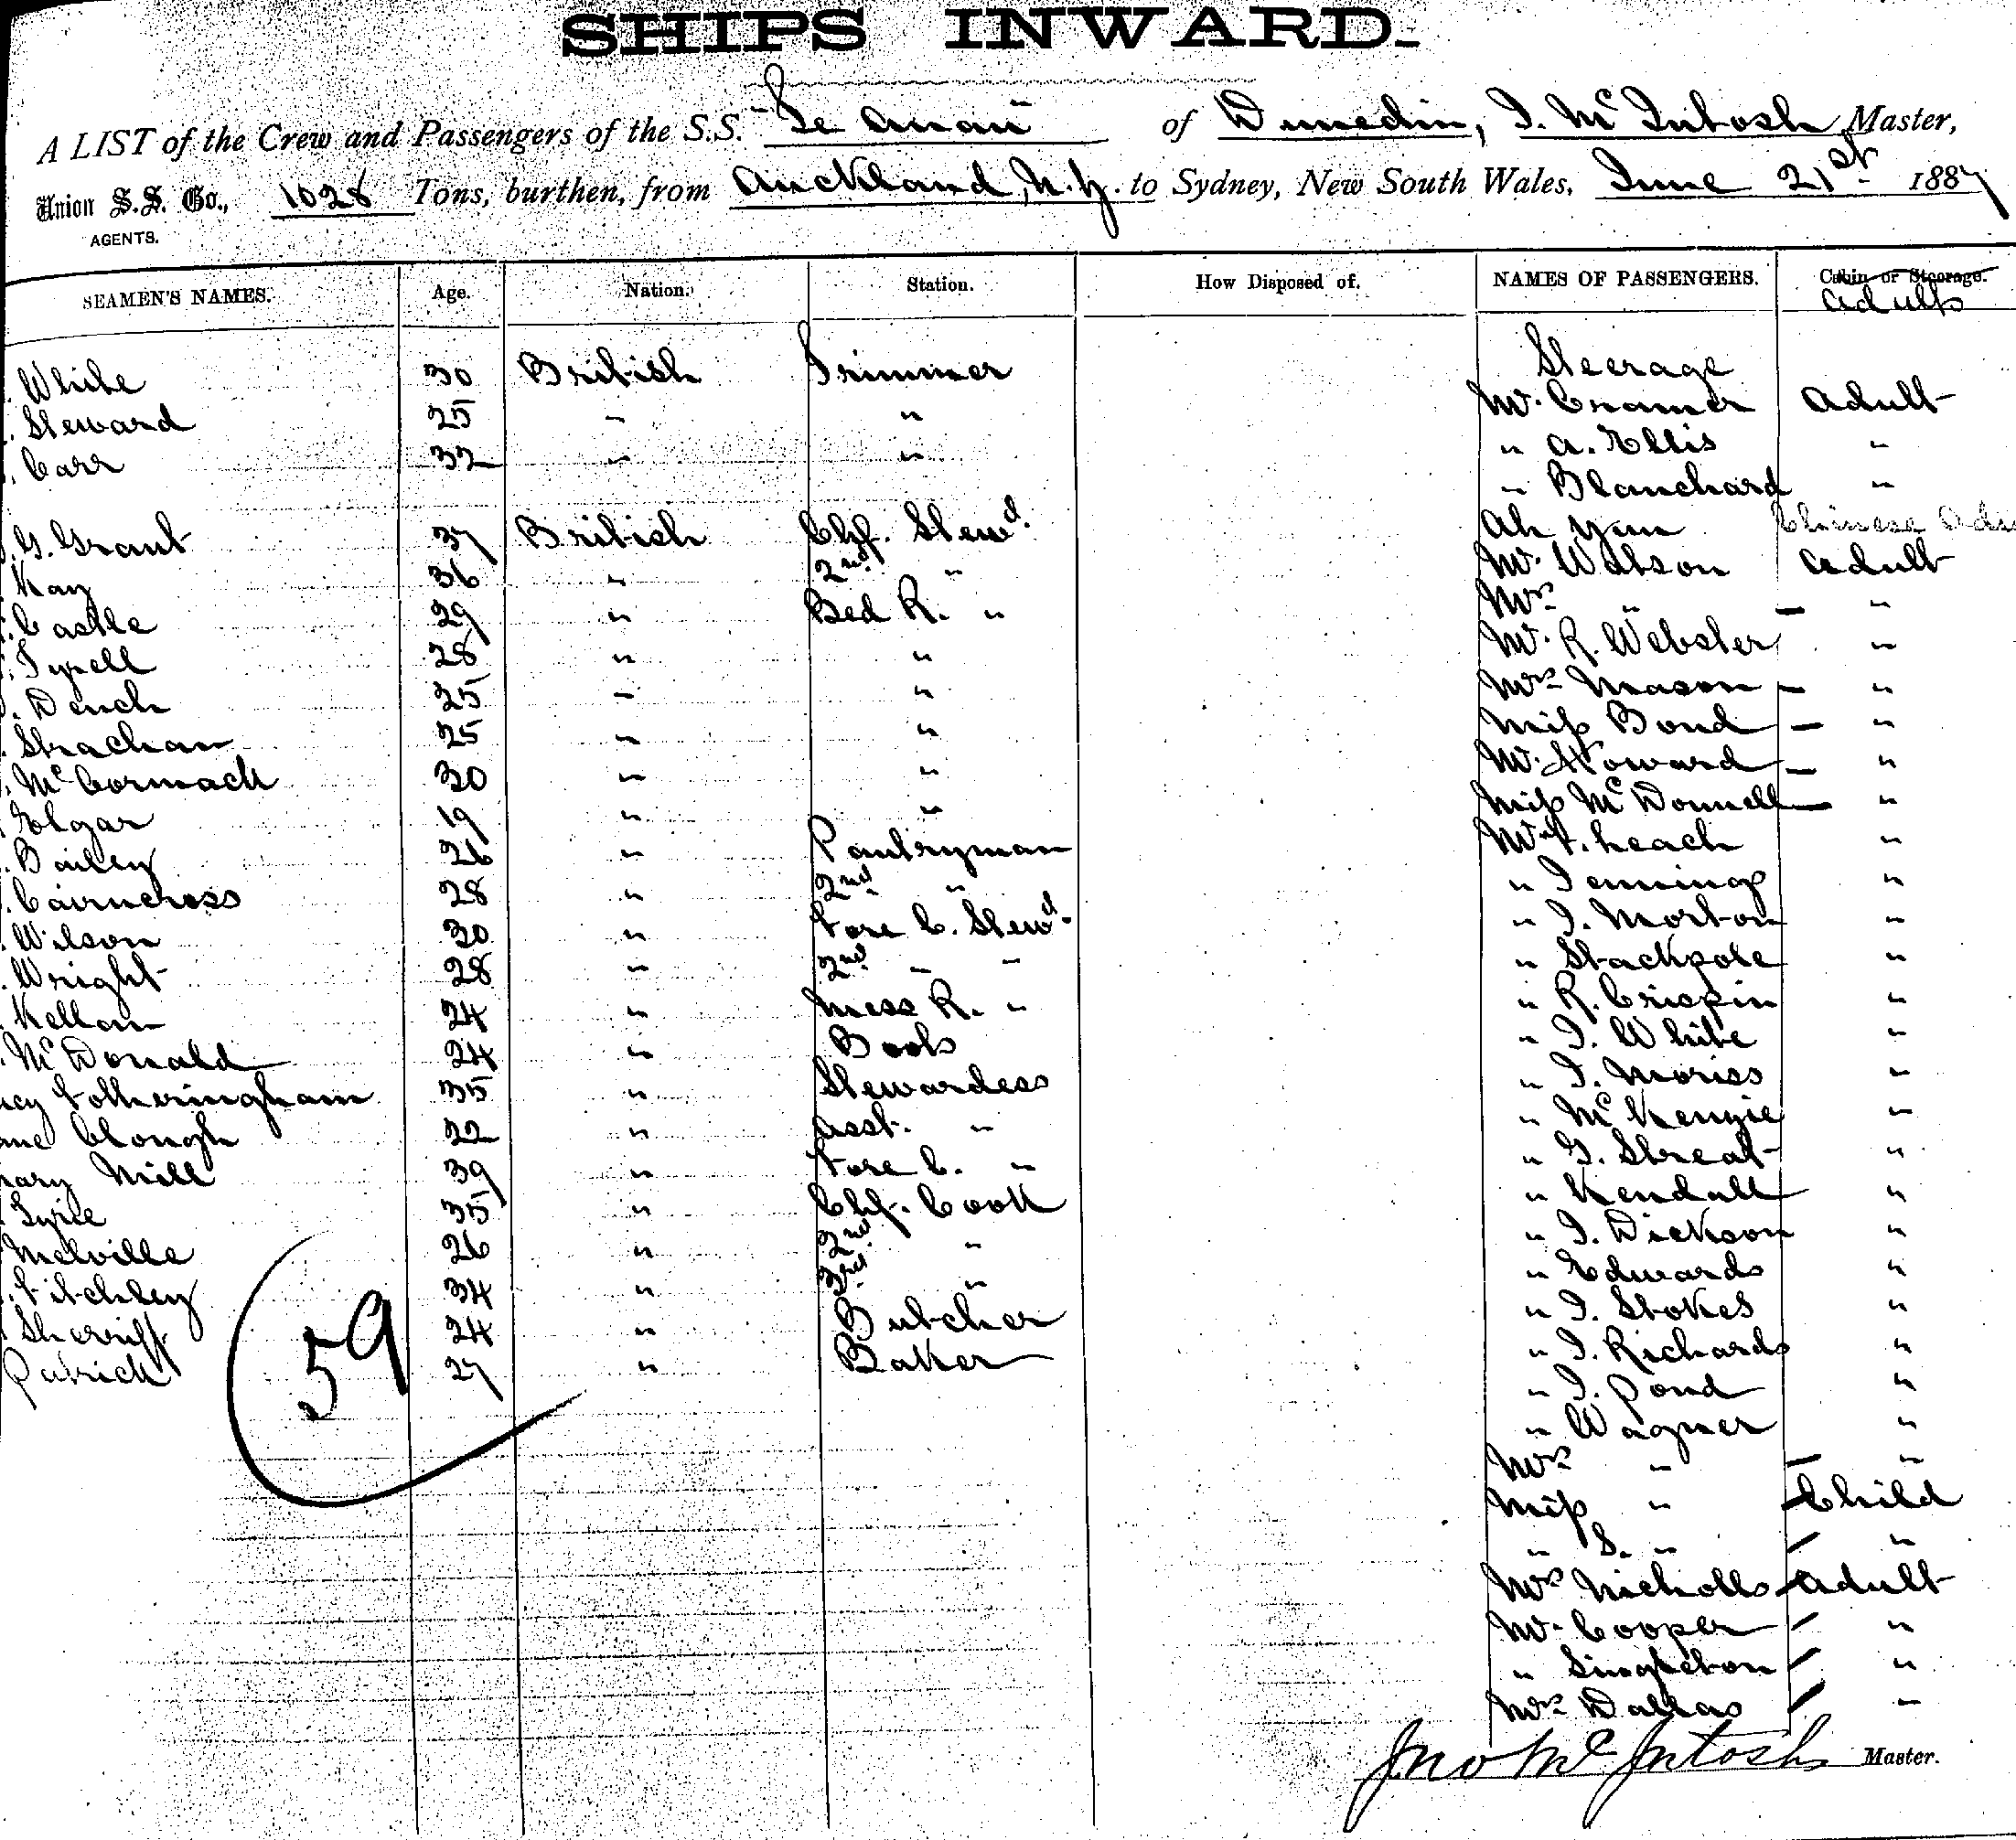 SHIPS INWARD.
A LIST of the Crew and Passengers of the S.S. Te Anau of Dunedin, J. McIntosh Master,
Union S.S. Co., AGENTS. 1028 Tons, burthen, from Auckland, N.Z. to Sydney, New South Wales, June 21st 1887
SEAMEN'S NAMES. Age. Nation. Station. How Disposed of. NAMES OF PASSENGERS. Cabin or Steerage. Adults
Steerage
White 30 British Trimmer Mr. Cramer Adult
Steward 25 " " " A. Ellis "
Carr 32 " " " Blanchard "
G. Grant 37 British Chf. Stewd. Ah Yan Chinese
Kay 36 " 2nd " Mr. Watson Adult
Castle 29 " Bed R. " Mrs " – "
Tyrell 28 " " Mr. R. Webster "
Dench 25 " " Mrs Mason – "
Strachan 25 " " Miss Bond – "
McCormack 30 " " Mr. Howard – "
Elgar 19 " " Miss McDonnell – "
Bailey 26 " Pantryman Mr. F. Leach "
Cairncross 28 " 2nd " " Jennings "
Wilson 30 " Fore C. Stewd. " J. Morton "
Wright 28 " 2nd " " " Stackpole "
24 " Mess R. " " R. Crispin "
McDonald 24 " Boots " J. White "
Fotheringham 35 " Stewardess " J. Moriss "
Clough 22 " Asst. " " McKenzie "
Mill 39 " Fore C. " " G. Streat "
35 " Chf. Cook " Kendall "
Melville 26 " 2nd " " J. Dickson "
Fitchley 34 " 3rd " " Edwards "
Sherriff 24 " Butcher " J. Stokes "
Patrick 27 " Baker " J. Richards "
59
" J. Pond "
" Wagner "
Mrs " – "
Miss " – Child
" S. " – "
Mrs Nicholls – Adult
Mr. Cooper – "
" Singleton – "
Mrs Dallas – "
Jno McIntosh Master.